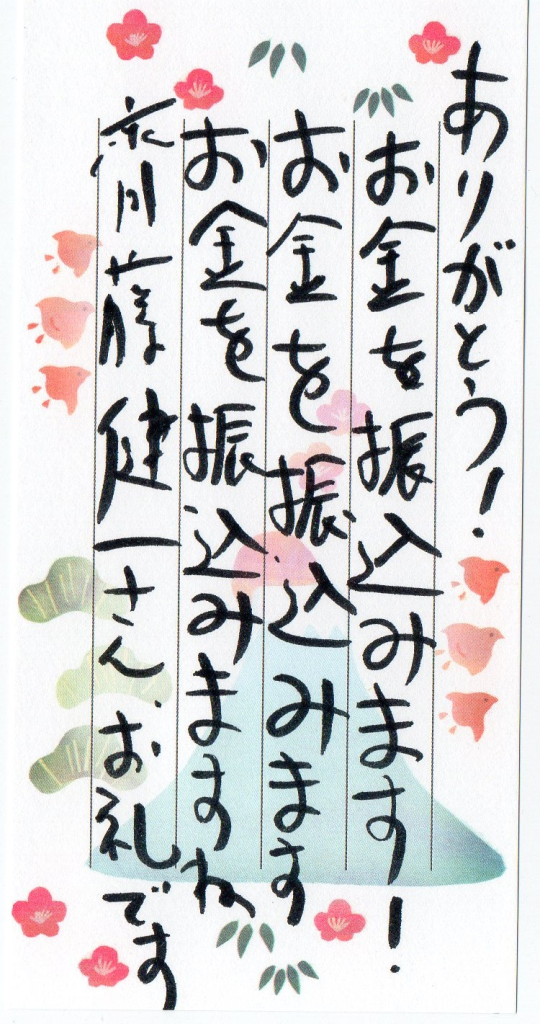 ありがとう！
お金を振込みます！
お金を振込みます
お金を振込みますね
斎藤健一さん、お礼です